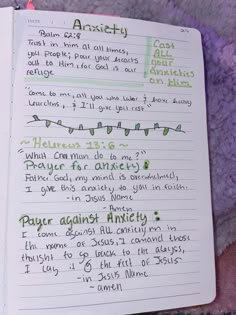 Anxiety
Psalm 62:8
Trust in him at all times,
you people; pour your hearts
out to Him, for God is our
refuge
Cast
ALL
your
anxieties
on Him
"Come to me, all you who labor & are heavy
burden, & I'll give you rest"
~ Hebrews 13:6 ~
"What can man do to me?"
Prayer for anxiety
Father God, my mind is overwhelmed,
I give this anxiety to you in faith.
-in Jesus Name
-Amen
Payer against Anxiety :
I come against All anxiety in
the name of Jesus, I command those
thought to go back to the abyss,
I lay it @ the feet of Jesus
-in Jesus Name
-amen